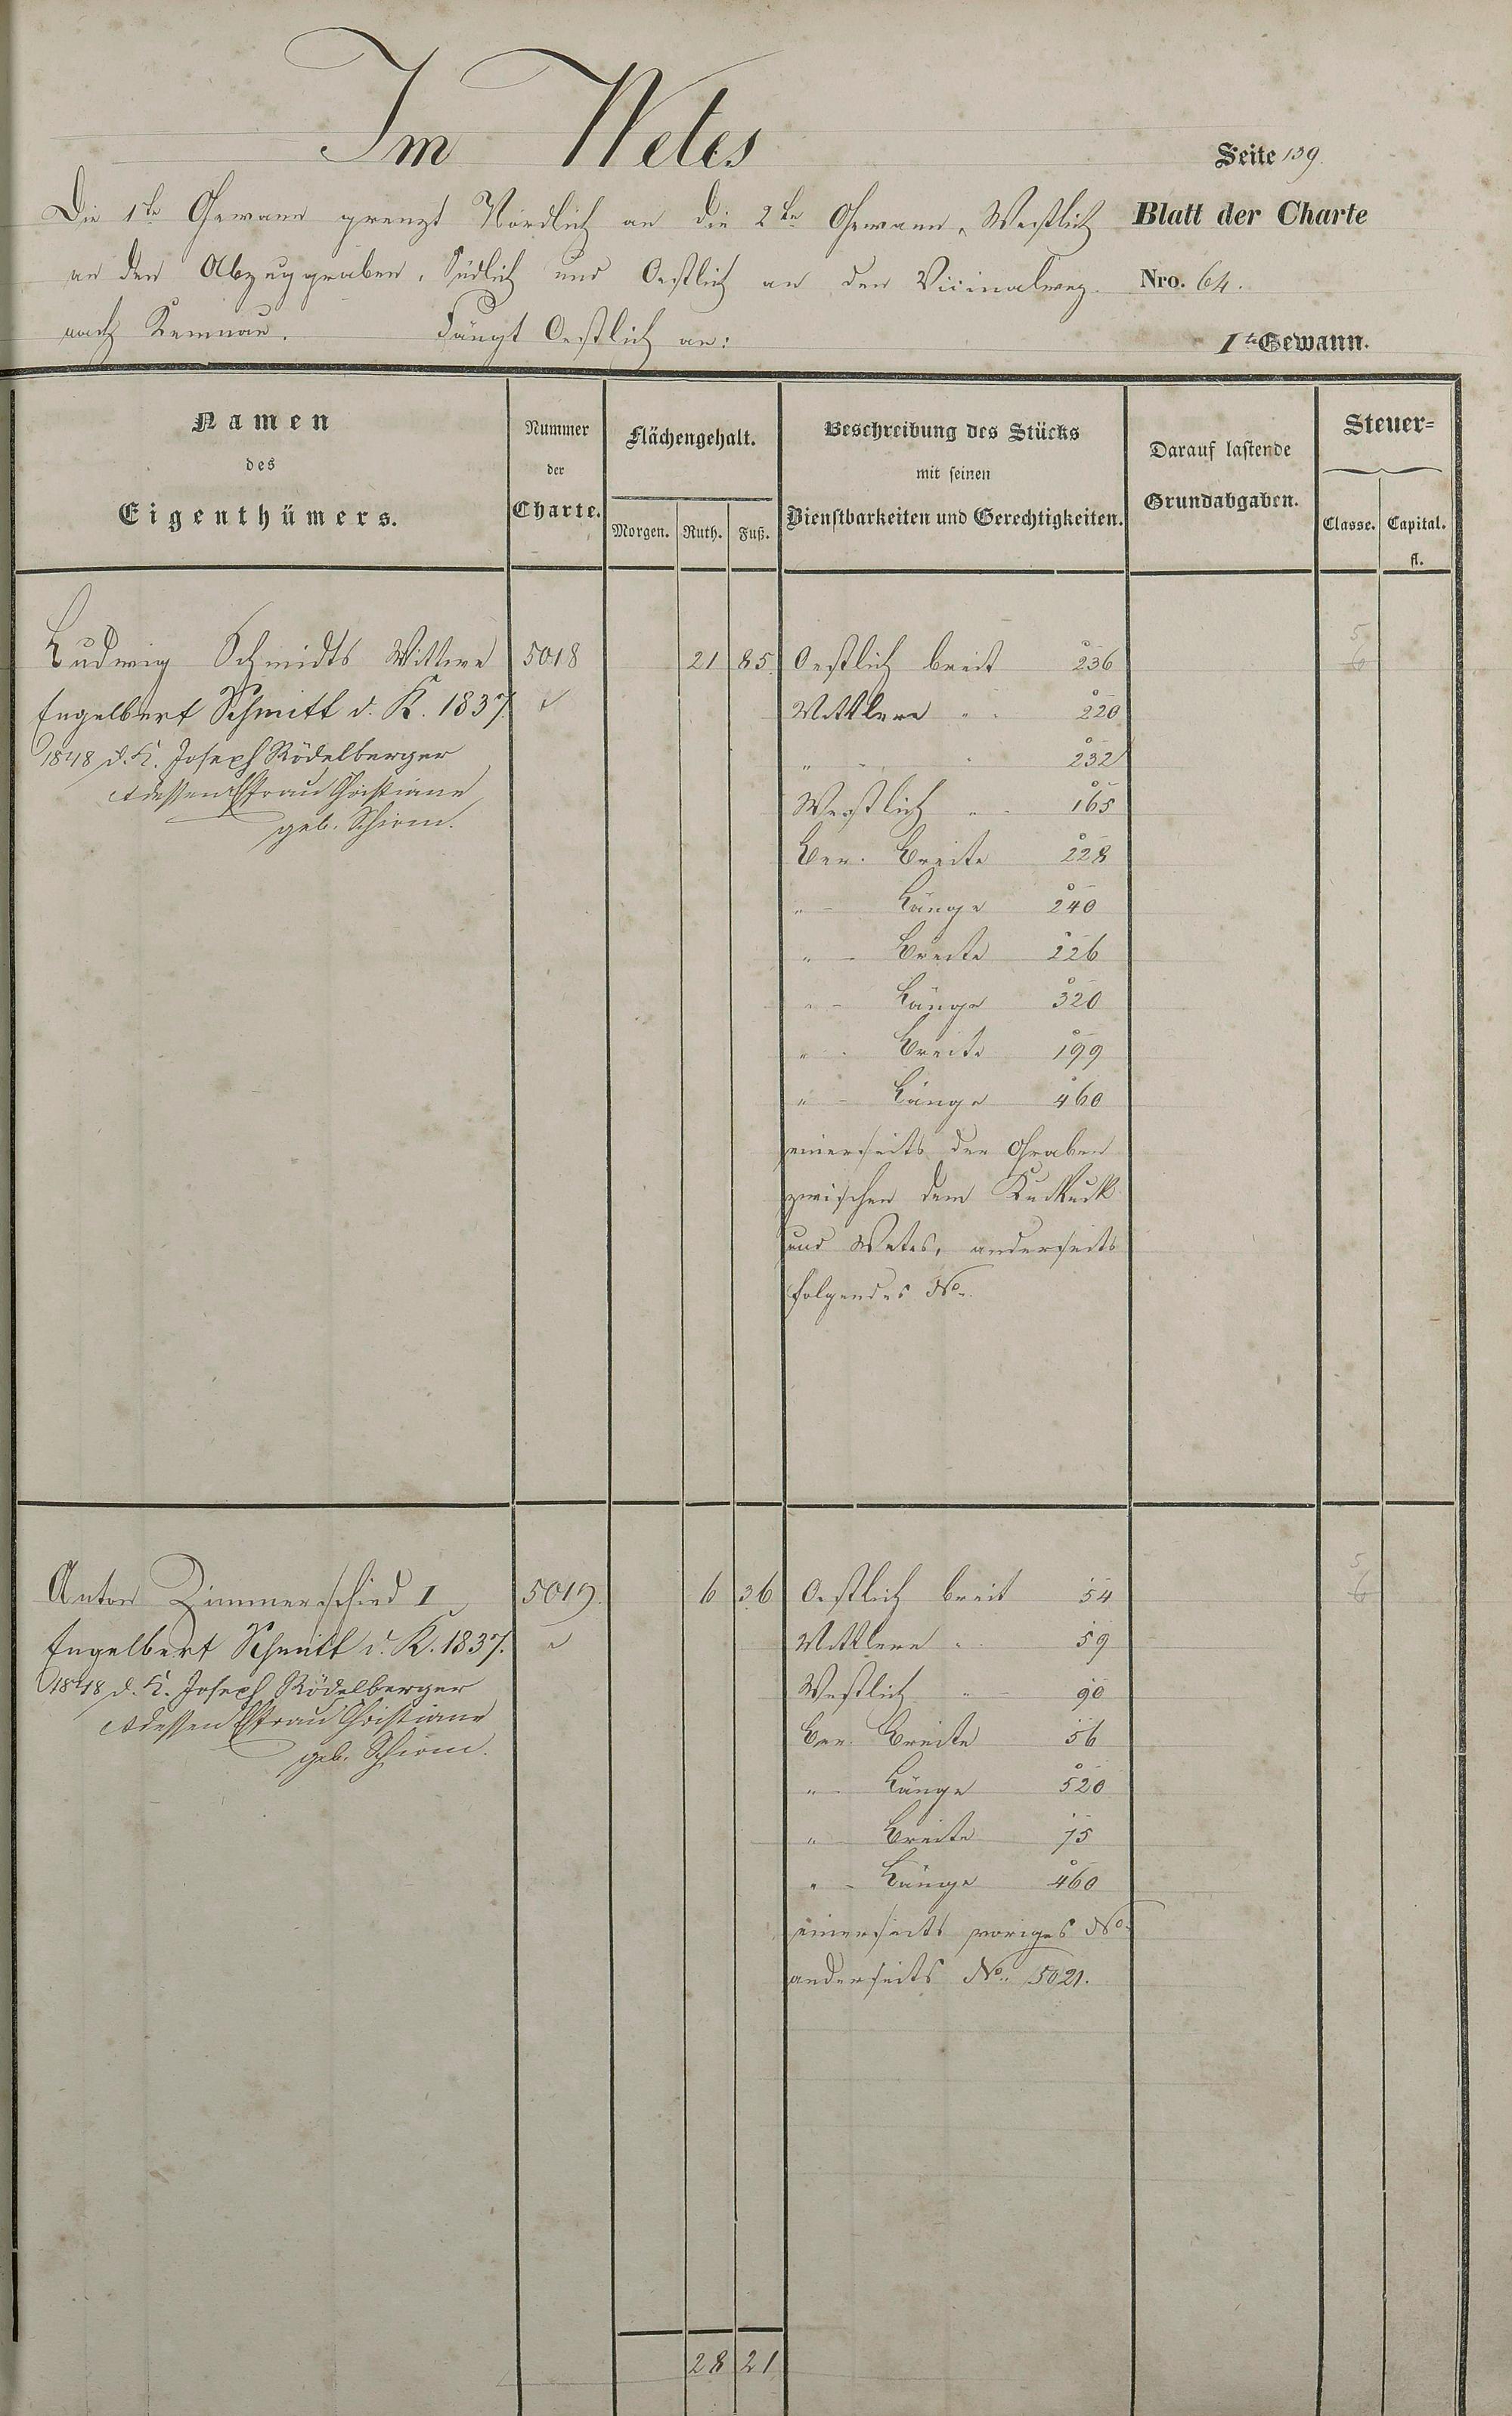 Im Wetes
Seite 139.
Die 1te Gewann grenzt Nördlich an die 2te Gewann, Westlich
Blatt der Charte
an den Abzuggraben, Südlich und Oestlich an den Vicinalweg
Nro. 64.
nach Kemnau. Fängt Oestlich an:
1te Gewann.
Namen
des
Eigenthümers.
Nummer
der
Charte.
Flächengehalt.
Morgen. Ruth. Fuß.
Beschreibung des Stücks
mit seinen
Dienstbarkeiten und Gerechtigkeiten.
Darauf lastende
Grundabgaben.
Steuer=
Classe. Capital.
fl.
Ludwig Schmidts Wittwe 5018 21 85 Oestlich breit 236
5
6
Engelbert Schmitt d. K. 1837. Mittlere " 220
1848 d. K. Joseph Rödelberger " " 232
& dessen Ehfrau Christiane Westlich " 165
geb. Schirm.
Ber. Breite 228
" Länge 240
" Breite 226
" Länge 320
" Breite 199
" Länge 460
einerseits den Graben
zwischen dem Kuckuck
und Wetes, anderseits
folgendes No.
Anton Zimmerschied I 5019. 6 36 Oestlich breit 54
5
6
Engelbert Schmitt d. K. 1837. Mittlere " 59
1848 d. K. Joseph Rödelberger Westlich " 90
& dessen Ehfrau Christiane Ber. Breite 56
geb. Schirm.
" Länge 520
" Breite 75
" Länge 460
einerseits voriges No.
anderseits No. 5021.
28 21